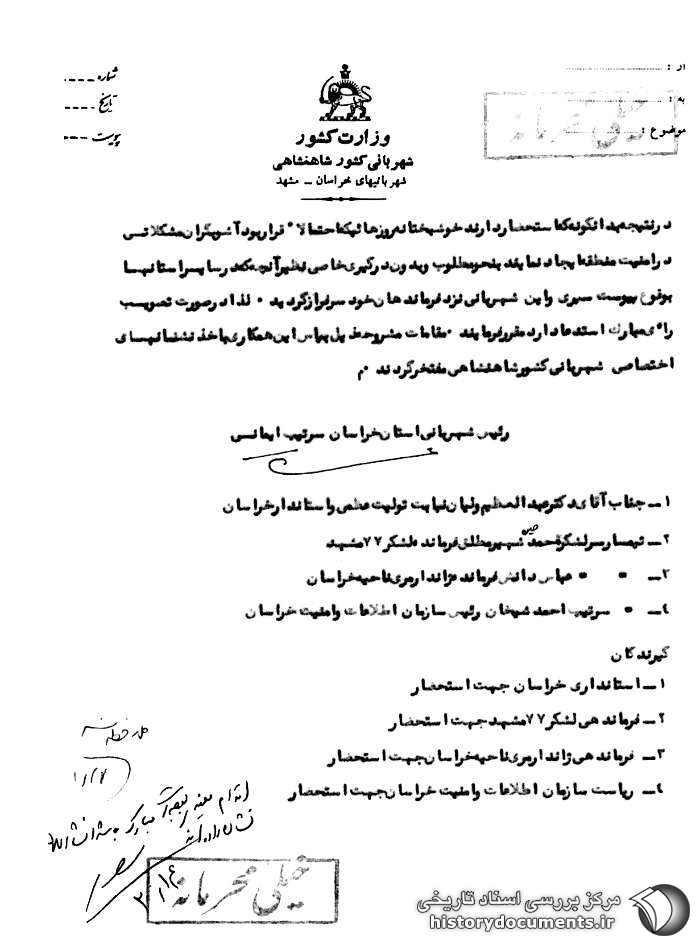 از :
به :
موضوع :
خیلی محرمانه
وزارت کشور
شهربانی کشور شاهنشاهی
شهربانیهای خراسان - مشهد
شماره
تاریخ
پیوست
در نتیجه بدانگونه که استحضار دارند خوشبختانه روزهائیکه احتمالا" قرار بود آشوبگران مشکلاتی
در امنیت منطقه ایجاد نمایند بنحو مطلوب وبدون درگیری خاصی نظیر آنچه که در سایر استانها
بوقوع پیوست سپری واین شهربانی نزد فرماندهان خود سرفراز گردید ۰ لذا در صورت تصویب
رأی مبارک استدعا دارد مقرر فرمایند ۰ مقامات مشروحه ذیل بپاس این همکاری باخذ نشانهای
اختصاصی شهربانی کشور شاهنشاهی مفتخر گردند ۰م
رئیس شهربانی استان خراسان سرتیپ ایمانی
۱ــ جناب آقای دکتر عبدالعظیم ولیان نیابت تولیت عظمی واستاندار خراسان
۲ــ تیمسار سرلشکر احمد شهیر مطلق فرمانده لشکر ۷۷ مشهد
۳ــ " " عباس دانش فرمانده ژاندارمری ناحیه خراسان
۴ــ " سرتیپ احمد شیخان رئیس سازمان اطلاعات وامنیت خراسان
گیرندگان
۱ــ استانداری خراسان جهت استحضار
۲ــ فرماندهی لشکر ۷۷ مشهد جهت استحضار
۳ــ فرماندهی ژاندارمری ناحیه خراسان جهت استحضار
۴ــ ریاست سازمان اطلاعات وامنیت خراسان جهت استحضار
خیلی محرمانه
مرکز بررسی اسناد تاریخی
historydocuments.ir